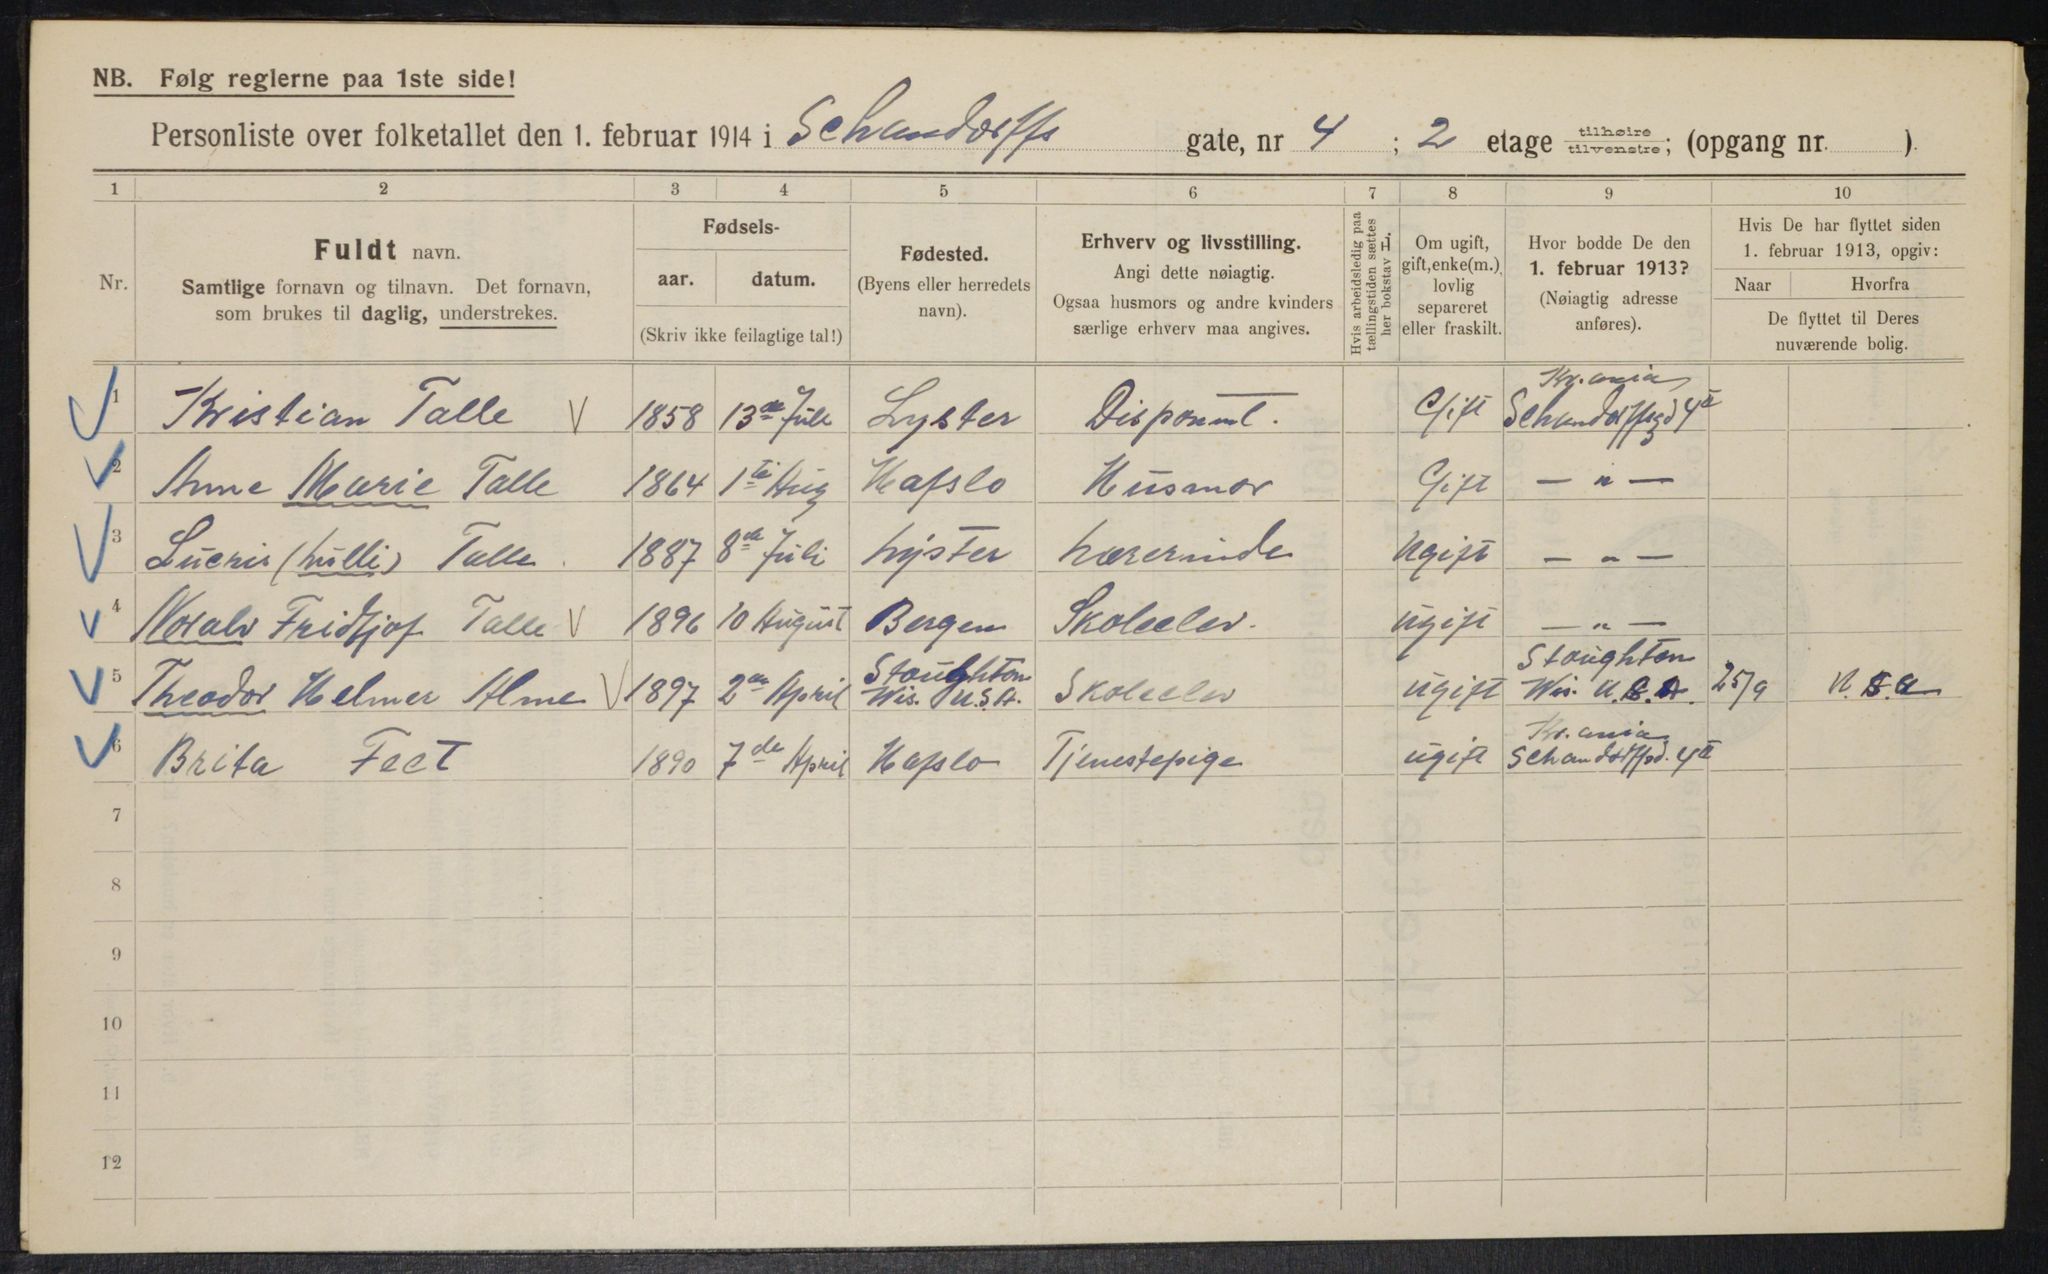 NB. Følg reglerne paa 1ste side!
Personliste over folketallet den 1. februar 1914 i Schandorffs gate, nr 4 ; 2 etage tilhøire tilvenstre; (opgang nr. ).
1 2 3 4 5 6 7 8 9 10
Nr.
Fuldt navn.
Samtlige fornavn og tilnavn. Det fornavn,
som brukes til daglig, understrekes.
Fødsels-
aar. datum.
(Skriv ikke feilagtige tal!)
Fødested.
(Byens eller herredets
navn).
Erhverv og livsstilling.
Angi dette nøiagtig.
Ogsaa husmors og andre kvinders
særlige erhverv maa angives.
Hvis arbeidsledig paa
tællingstiden sættes
her bokstav L.
Om ugift,
gift, enke(m.),
lovlig
separeret
eller fraskilt.
Hvor bodde De den
1. februar 1913?
(Nøiagtig adresse
anføres).
Hvis De har flyttet siden
1. februar 1913, opgiv:
Naar Hvorfra
De flyttet til Deres
nuværende bolig.
Kr.ania
1 Kristian Talle V 1858 13de Juli Lyster Disponent. Gift Schandorffsgd 4 II
2 Anne Marie Talle 1864 1ste Aug Hafslo Husmor Gift — " —
3 (Lulli) Talle 1887 8de Juli Lyster Lærerinde Ugift — " —
4 Noralv Fridtjof Talle V 1896 10 August Bergen Skoleelev. ugift — " —
Stoughton Stoughton
5 Theodor Helmer Alme V 1897 2den April Wis. U.S.A. Skoleelev ugift Wis. U.S.A. 25/9 U.S.A
Kr.ania
6 Brita Feet 1890 7de April Hafslo Tjenestepige ugift Schandorffsgd. 4 II
7
8
9
10
11
12